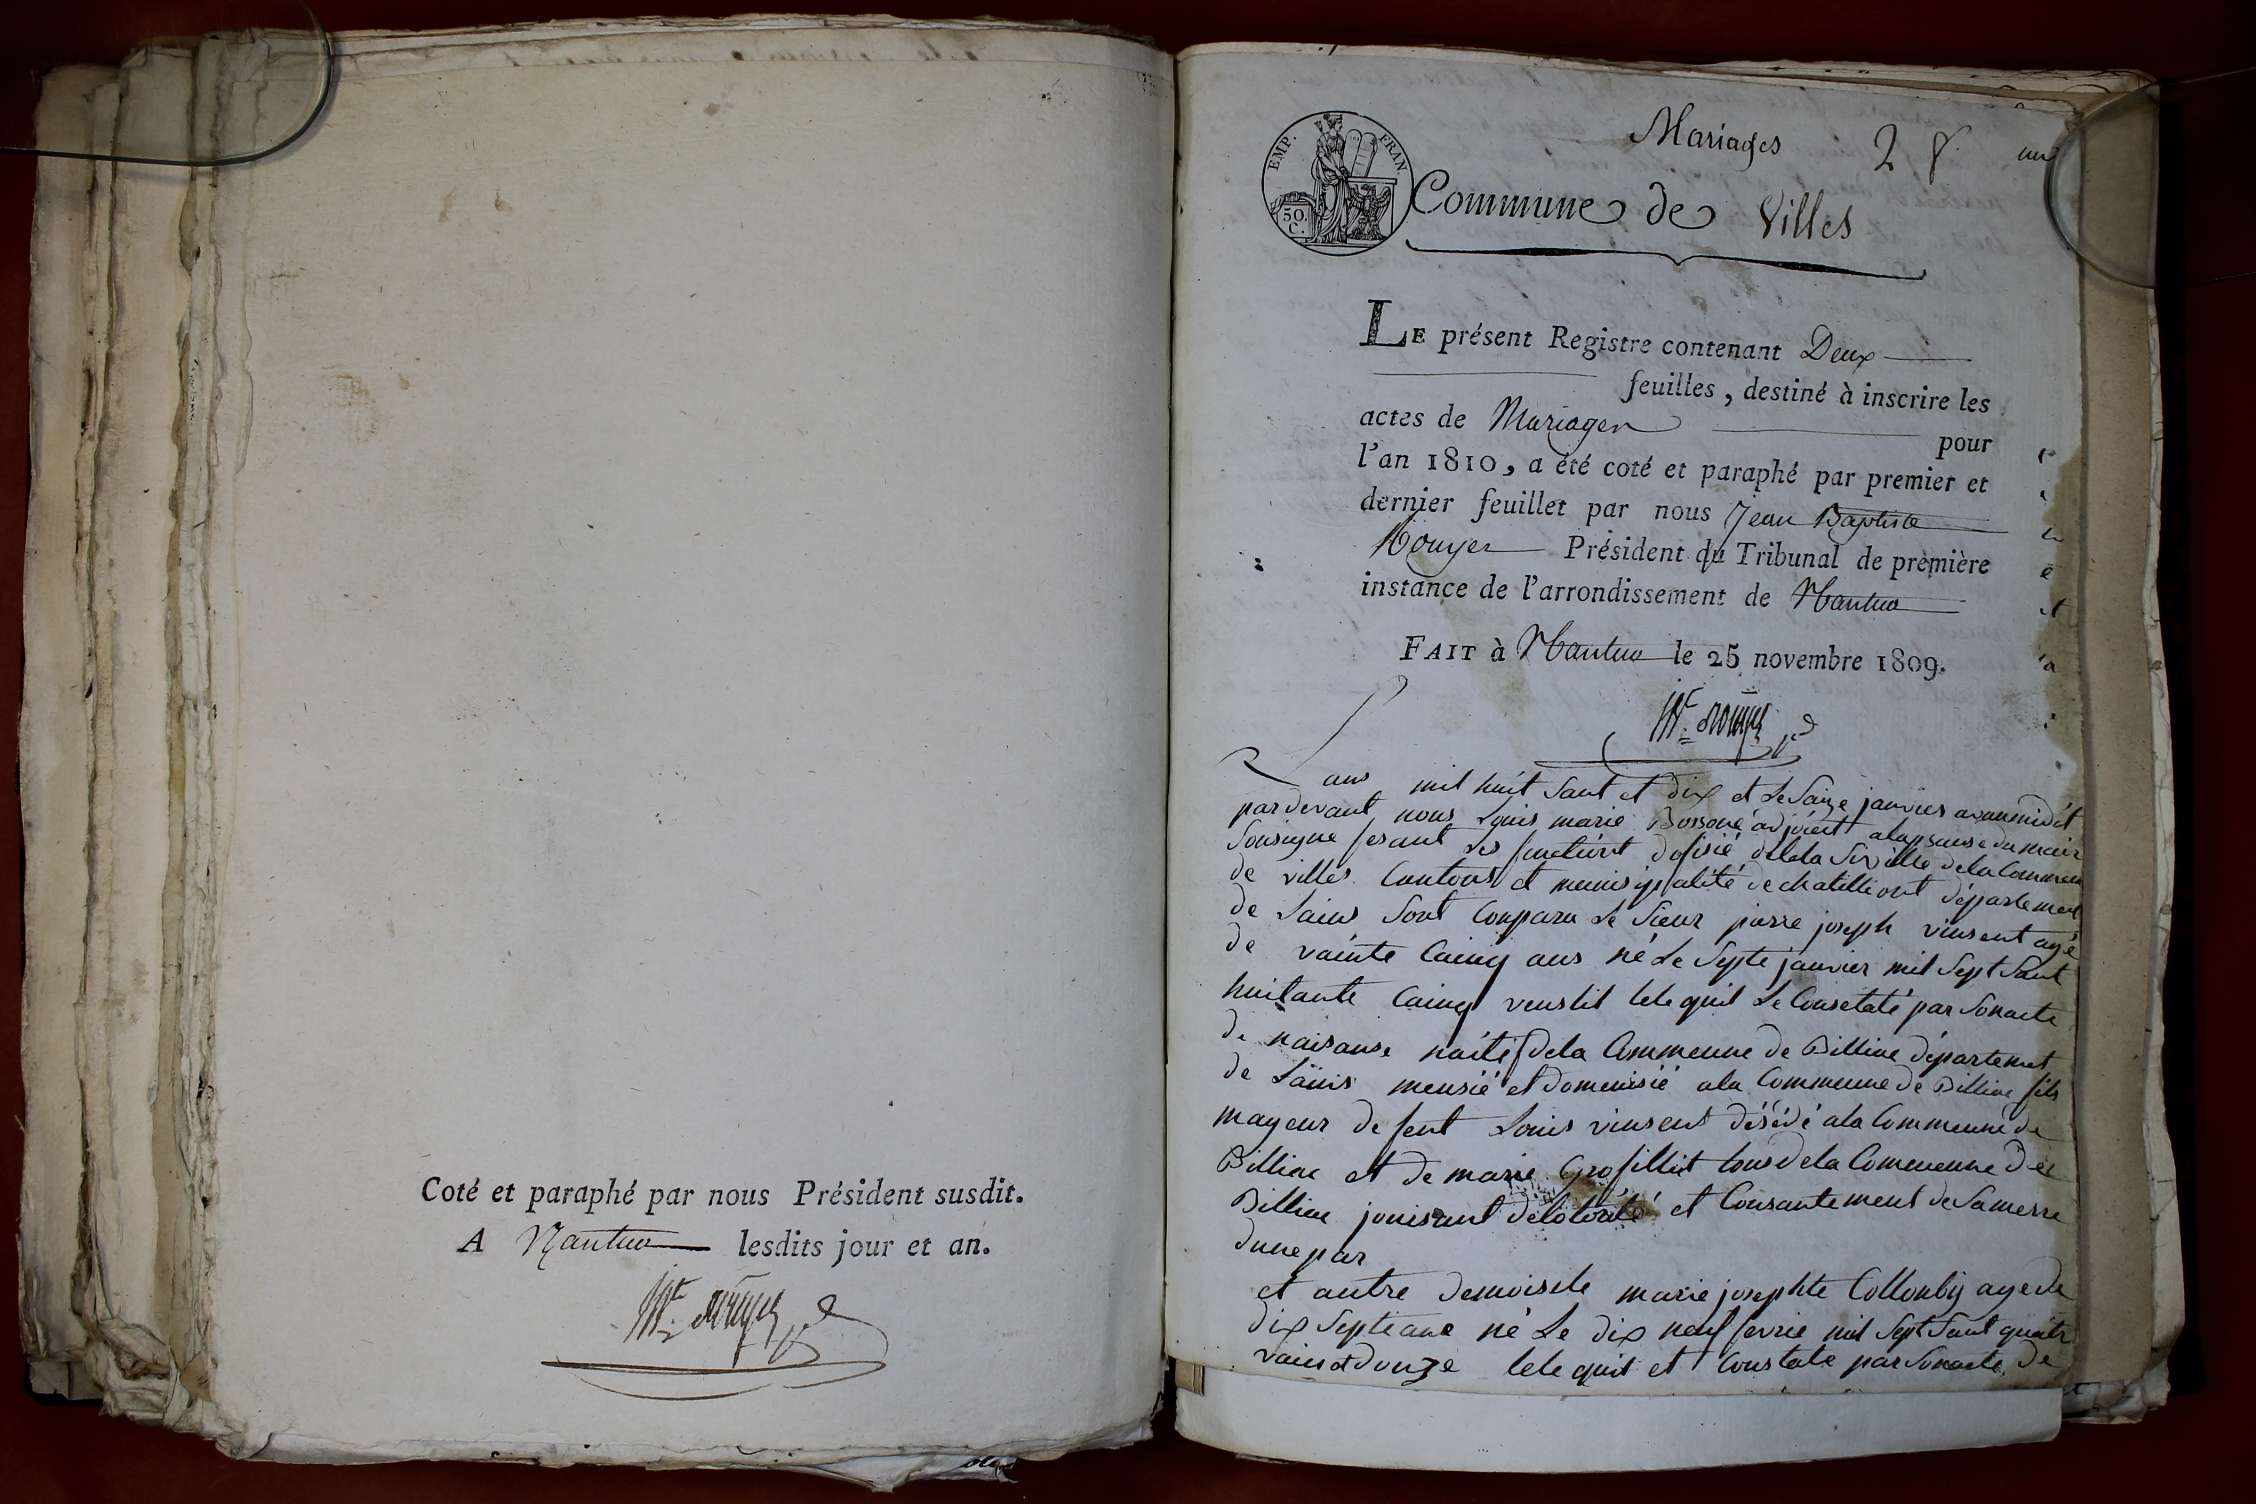 Coté et paraphé par nous Président susdit.
A Nantua lesdits jour et an.
Mariages 2 8. un
EMP. FRAN
50. C.
Commune de Villes
LE présent Registre contenant Deux
feuilles, destiné à inscrire les
actes de Mariages
pour
l'an 1810, a été coté et paraphé par premier et
dernier feuillet par nous Jean Baptiste
Rouyer Président du Tribunal de première
instance de l'arrondissement de Nantua
FAIT à Nantua le 25 novembre 1809.
Rouyer
Lans mil huit sant et dix et le saize janvier avanmidit
pardevant nous Louis marie Bossoné adjoient alapsanse du mair
sousigne fesant les fonctiont dofisié deleta siville dela Commune
de villes Cantons et munisipalité de chatilliont département
de Lains sont Conparu le sieur pierre joseph vinsent agé
de vainte Cainq ans né le septe janvier mil sept sant
huitante Cainq venslit lele quil le Consetaté par sonacte
de naisanse naitif dela Commenne de Billiac département
de Lains mensié et domenisié ala Commenne de Billiac fils
mayeur de feut Louis vinsent désédé ala Commenne de
Billiac et de marie Grofillit tous dela Commenne de
Billiac jouisant delotorité et Consantement de samerre
dune par
et autre demoisele marie josephte Collonby agé de
dix septe ane né le dix neuf fevrié mil sept sant quatr
vains et douze lele quit et Constate par sonacte de